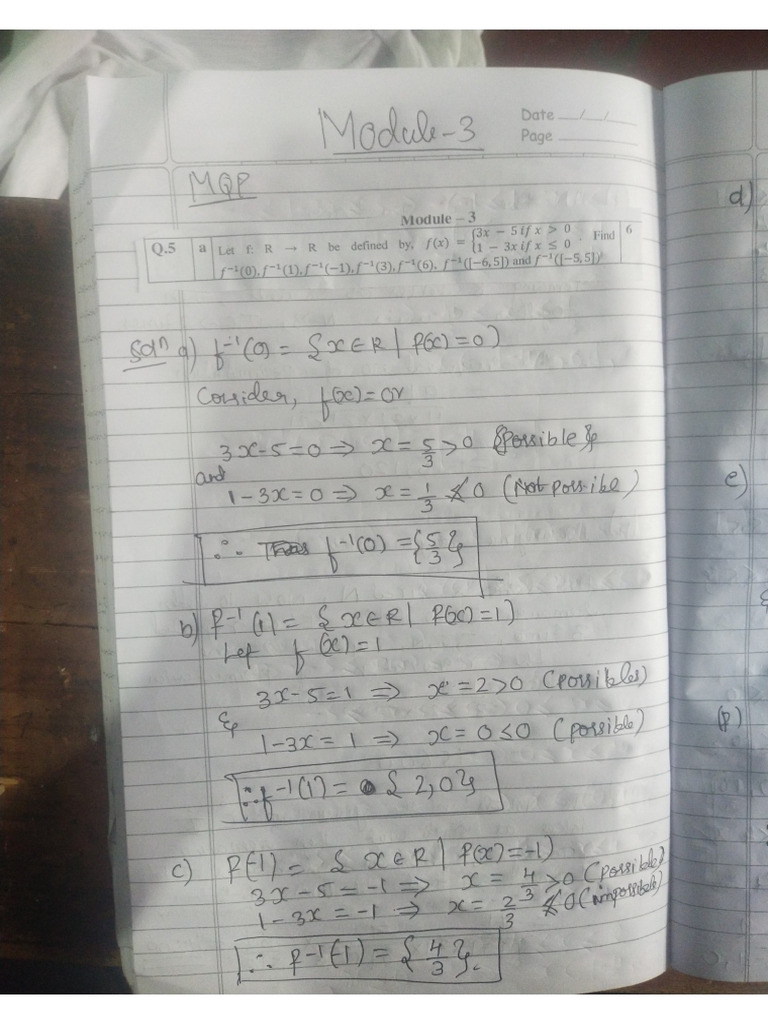 Module-3
Date __/__/__
Page ________
MQP
Module – 3
Q.5 a Let f: R → R be defined by, f(x) = {3x − 5 if x > 0
1 − 3x if x ≤ 0 . Find 6
f⁻¹(0), f⁻¹(1), f⁻¹(−1), f⁻¹(3), f⁻¹(6), f⁻¹([−6,5]) and f⁻¹([−5,5])
Solⁿ a) f⁻¹(0) = {x∈R | f(x)=0}
Consider, f(x)=0
3x-5=0 ⇒ x = 5/3 >0 {Possible}
and
1-3x=0 ⇒ x = 1/3 ≰ 0 (Not possible)
∴ f⁻¹(0) = {5/3}
b) f⁻¹(1) = {x∈R | f(x)=1)
Let f(x)=1
3x-5=1 ⇒ x=2>0 (possibles)
&
1-3x=1 ⇒ x=0≤0 (possible)
∴ f⁻¹(1) = {2,0}
c) f(-1) = {x∈R | f(x)=-1)
3x-5=-1 ⇒ x = 4/3 >0 (possible)
1-3x=-1 ⇒ x = 2/3 ≰ 0 (impossible)
∴ f⁻¹(-1) = {4/3}.
d)
e)
(f)